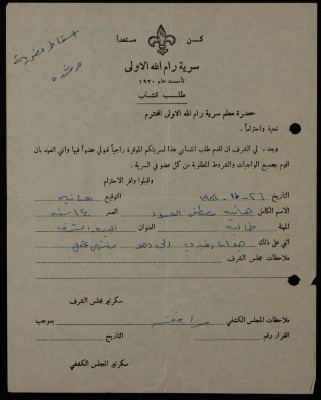 كـن مستعداً
سرية رام الله الاولى
تأسست عام ١٩٣٠
طلب انتساب
اسقاط عضوية
مرشدة
حضرة معلم سرية رام الله الاولى المحترم
تحية واحتراماً،
وبعد، لي الشرف ان اقدم طلب انتسابي هذا لسريتكم الموقرة راجياً قبولي عضواً فيها واني اتعهد بان
اقوم بجميع الواجبات والشروط المطلوبة من كل عضو في السرية.
واقبلوا وافر الاحترام
التاريخ التوقيع هانية
الاسم الكامل هانية مصطفى العمر
المهنة طالبة العنوان
اثني على ذلك
ملاحظات مجلس الشرف
سكرتير مجلس الشرف
ملاحظات المجلس الكشفي موافقة بموجب
القرار رقم التاريخ
سكرتير المجلس الكشفي